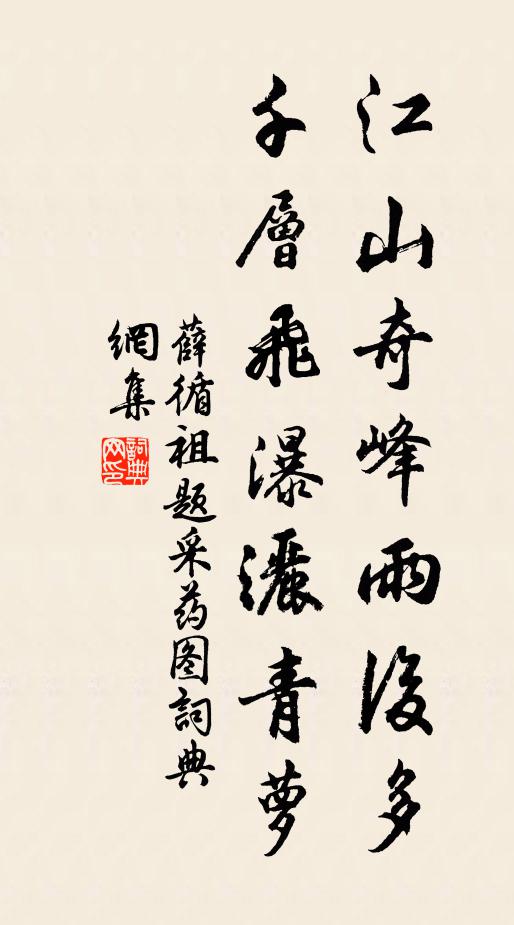 江山奇峰雨後多
千層飛瀑灑青萝
薛循祖题采药图詞典
網集
詞典
网印